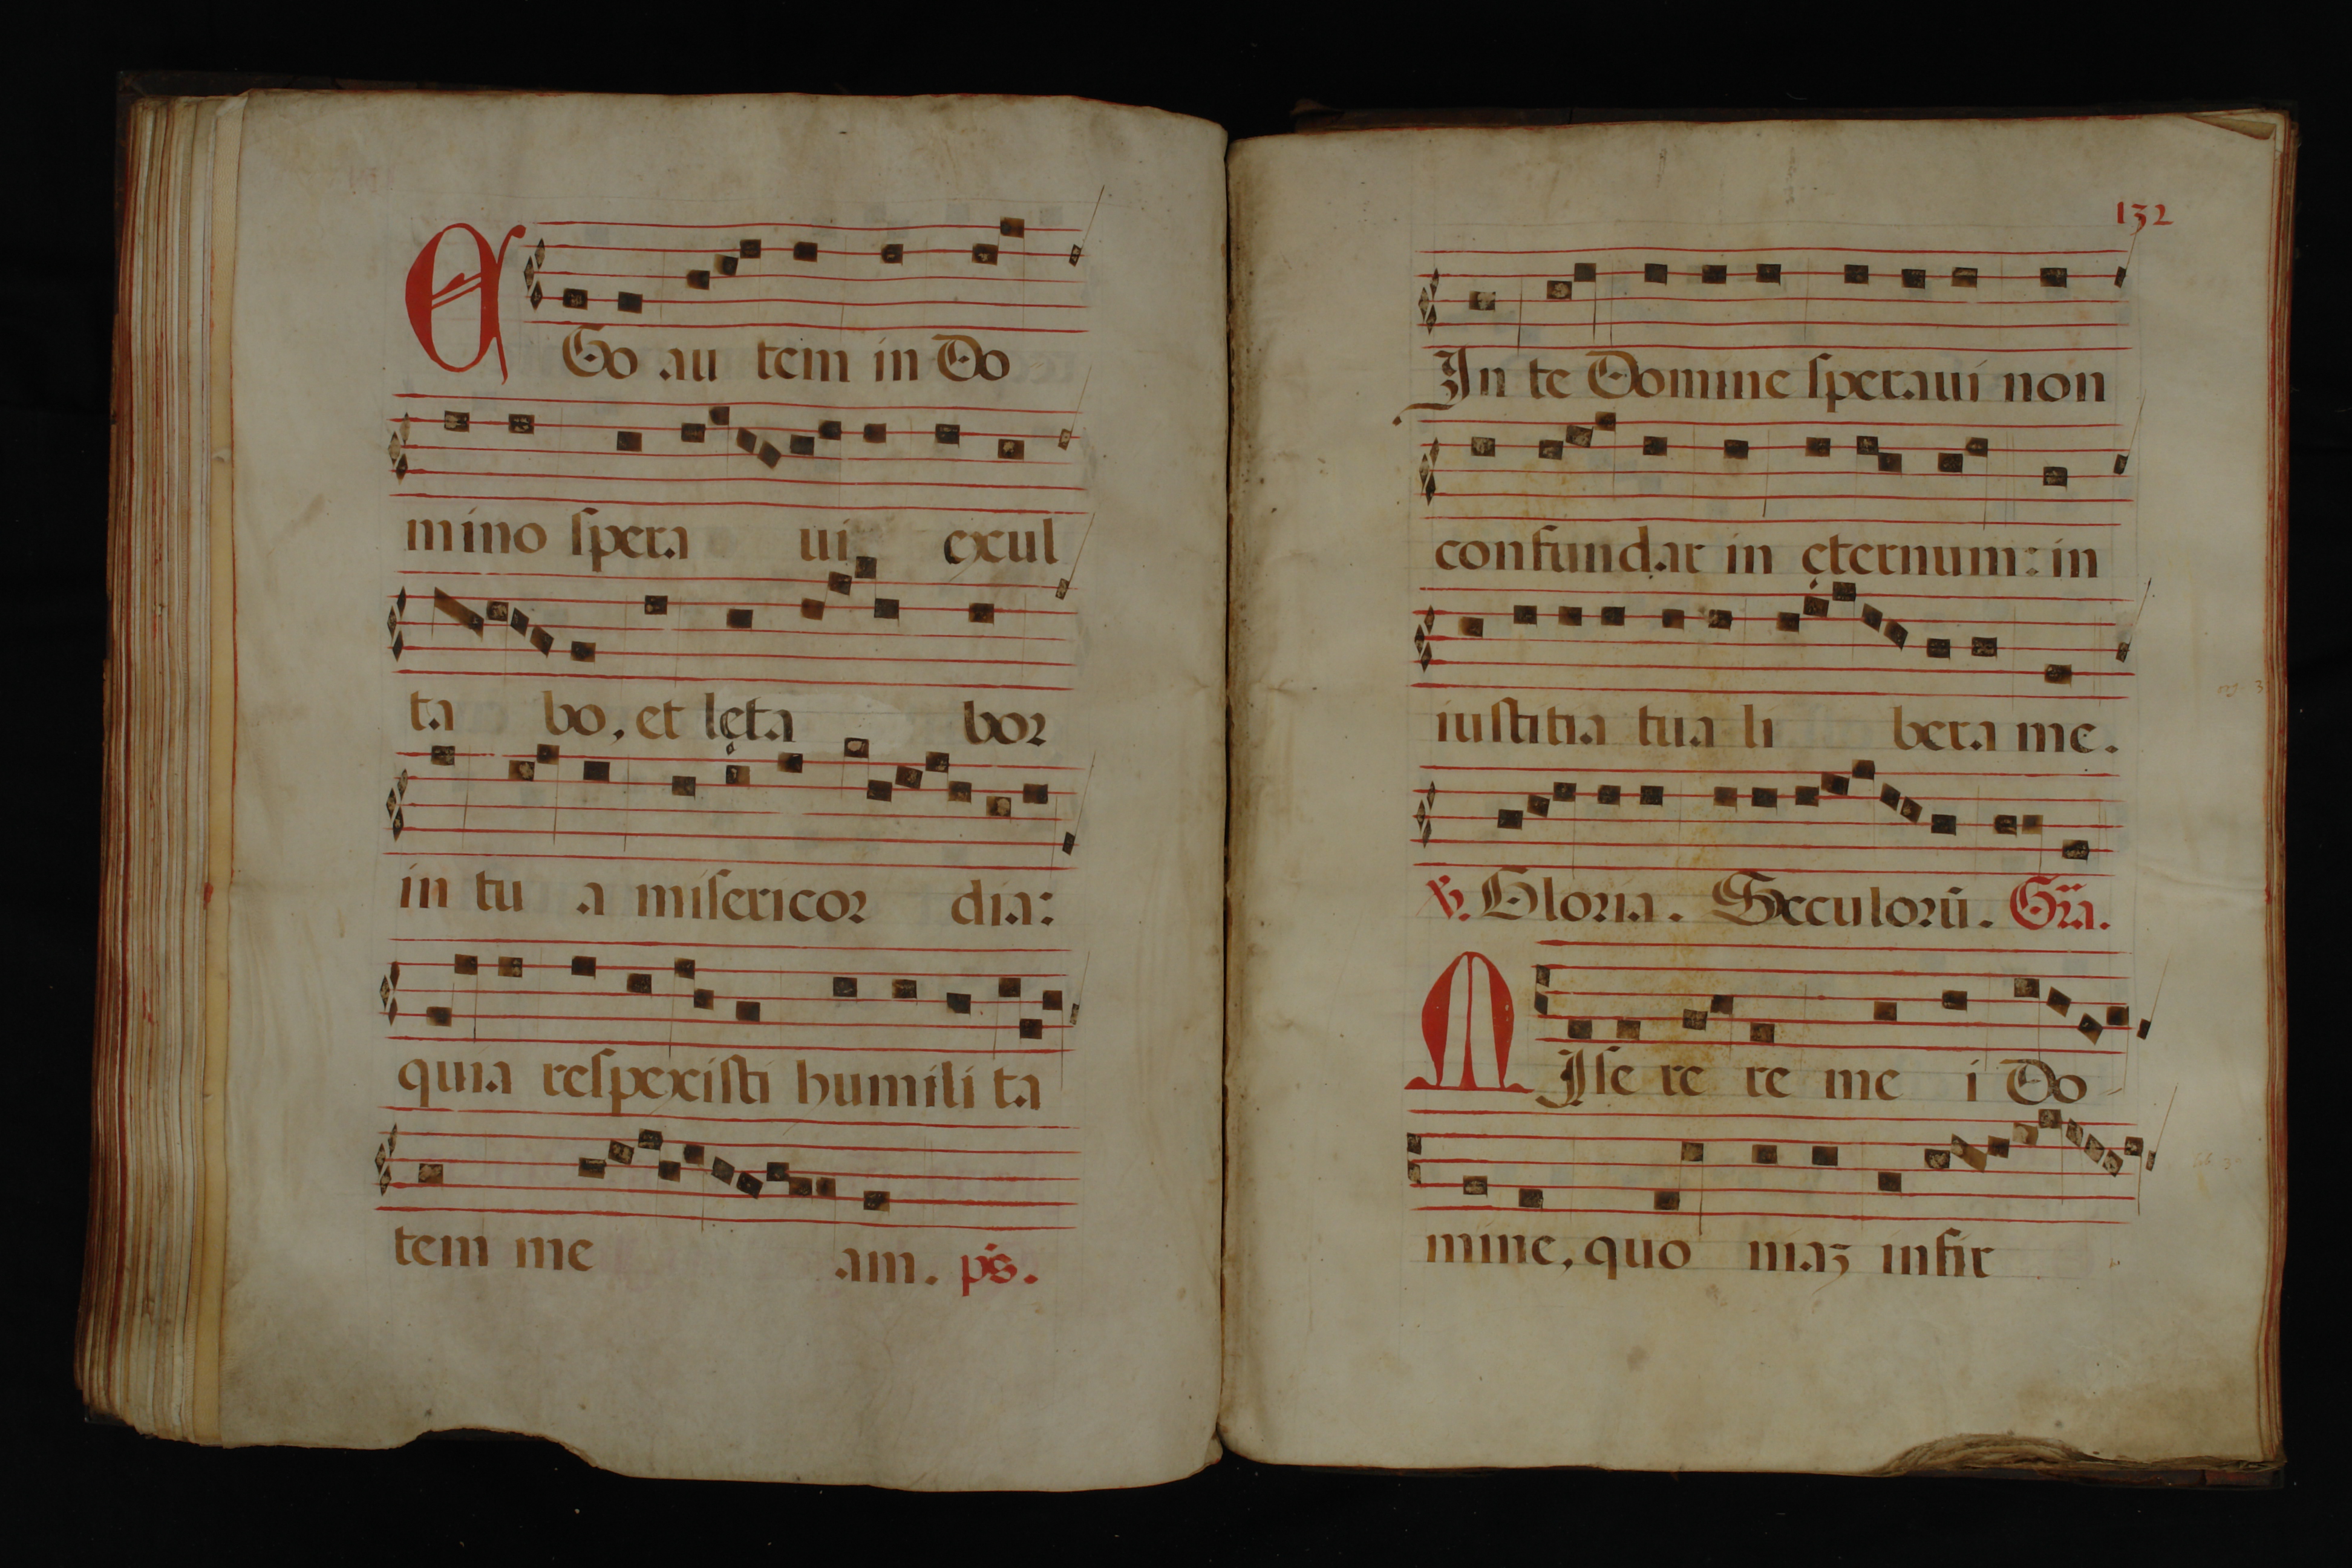 EGo au tem in Do
mino spera ui exul
ta bo, et lęta bor
in tu a misericor dia:
quia respexisti humili ta
tem me am. ps.
132
In te Domine speraui non
confundar in ęternum: in
iustitia tua li bera me.
℣. Gloria. Seculorū. Gra.
MIse re re me i Do
mine, quo niaʒ infir